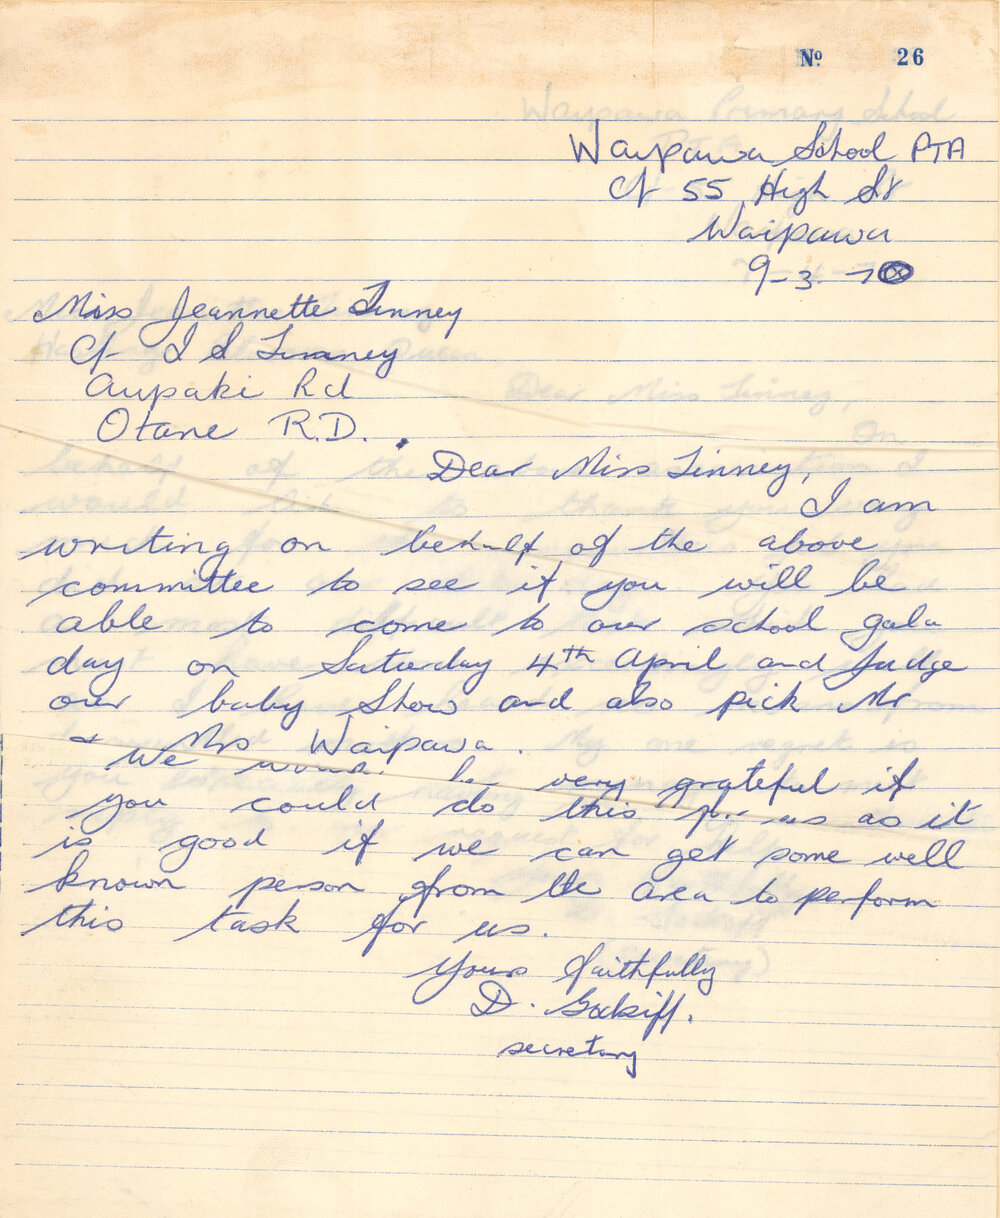 No 26
Waipawa School PTA
C/- 55 High St
Waipawa
9-3-70
Miss Jeannette Tinney
C/- I S Tinney
Aupaki Rd
Otane R.D.
Dear Miss Tinney,
I am
writing on behalf of the above
committee to see if you will be
able to come to our school gala
day on Saturday 4th April and judge
our baby show and also pick Mr
+ Mrs Waipawa.
We would be very grateful if
you could do this for us as it
is good if we can get some well
known person from the area to perform
this task for us.
Yours faithfully
D.
secretary